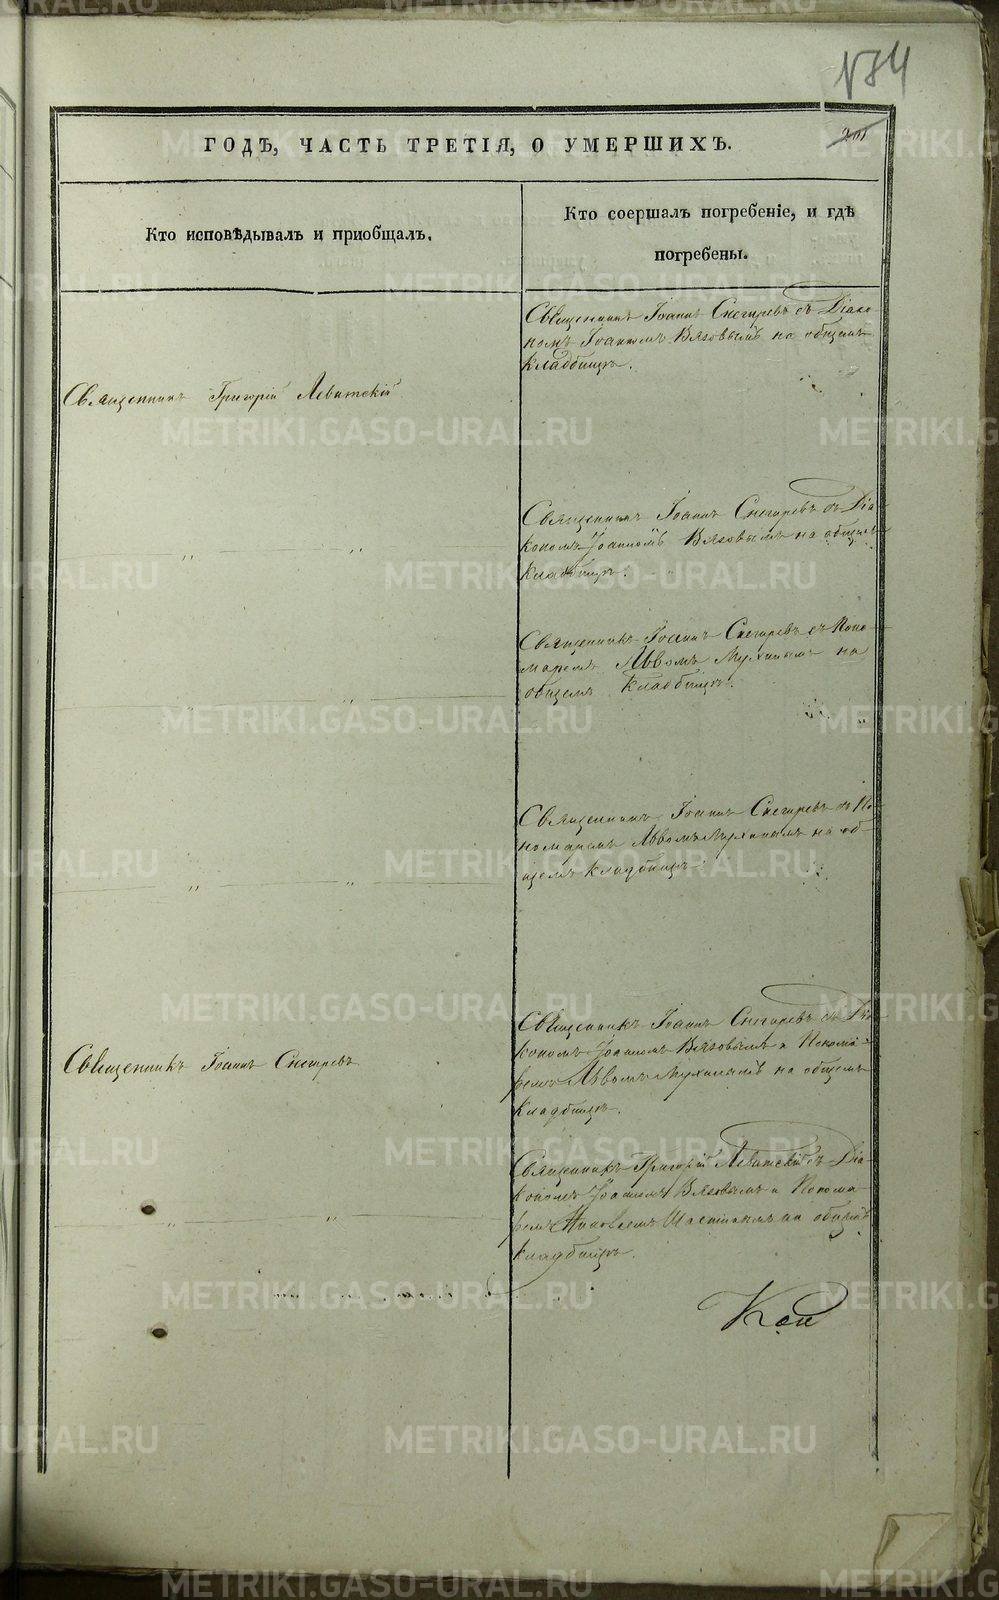 184
201
ГОДѢ, ЧАСТЬ ТРЕТІЯ, О УМЕРШИХЪ.
Кто исповѣдывалъ и приобщалъ.
Кто соершалъ погребеніе, и гдѣ
погребены.
Священникъ Іоаннъ Снегиревъ съ Діако
номъ Іоанномъ Вязовымъ на общемъ
кладбищѣ.
Священникъ Григорій Левитскій
Священникъ Іоаннъ Снегиревъ съ Діа
кономъ Іоанномъ Вязовымъ на общемъ
кладбищѣ.
„ „
Священникъ Іоаннъ Снегиревъ съ Поно
маремъ Львомъ Мухинымъ на
общемъ кладбищѣ.
„ „
Священникъ Іоаннъ Снегиревъ съ По
номаремъ Львомъ Мухинымъ на об
щемъ кладбищѣ.
„ „
Священникъ Іоаннъ Снегиревъ съ Діа
кономъ Іоанномъ Вязовымъ и Понома
ремъ Львомъ Мухинымъ на общемъ
кладбищѣ.
Священникъ Іоаннъ Снегиревъ
Священникъ Григорій Левитскій съ Діа
кономъ Іоанномъ Вязовымъ и Понома
ремъ на общемъ
кладбищѣ.
„ „
METRIKI.GASO-URAL.RU